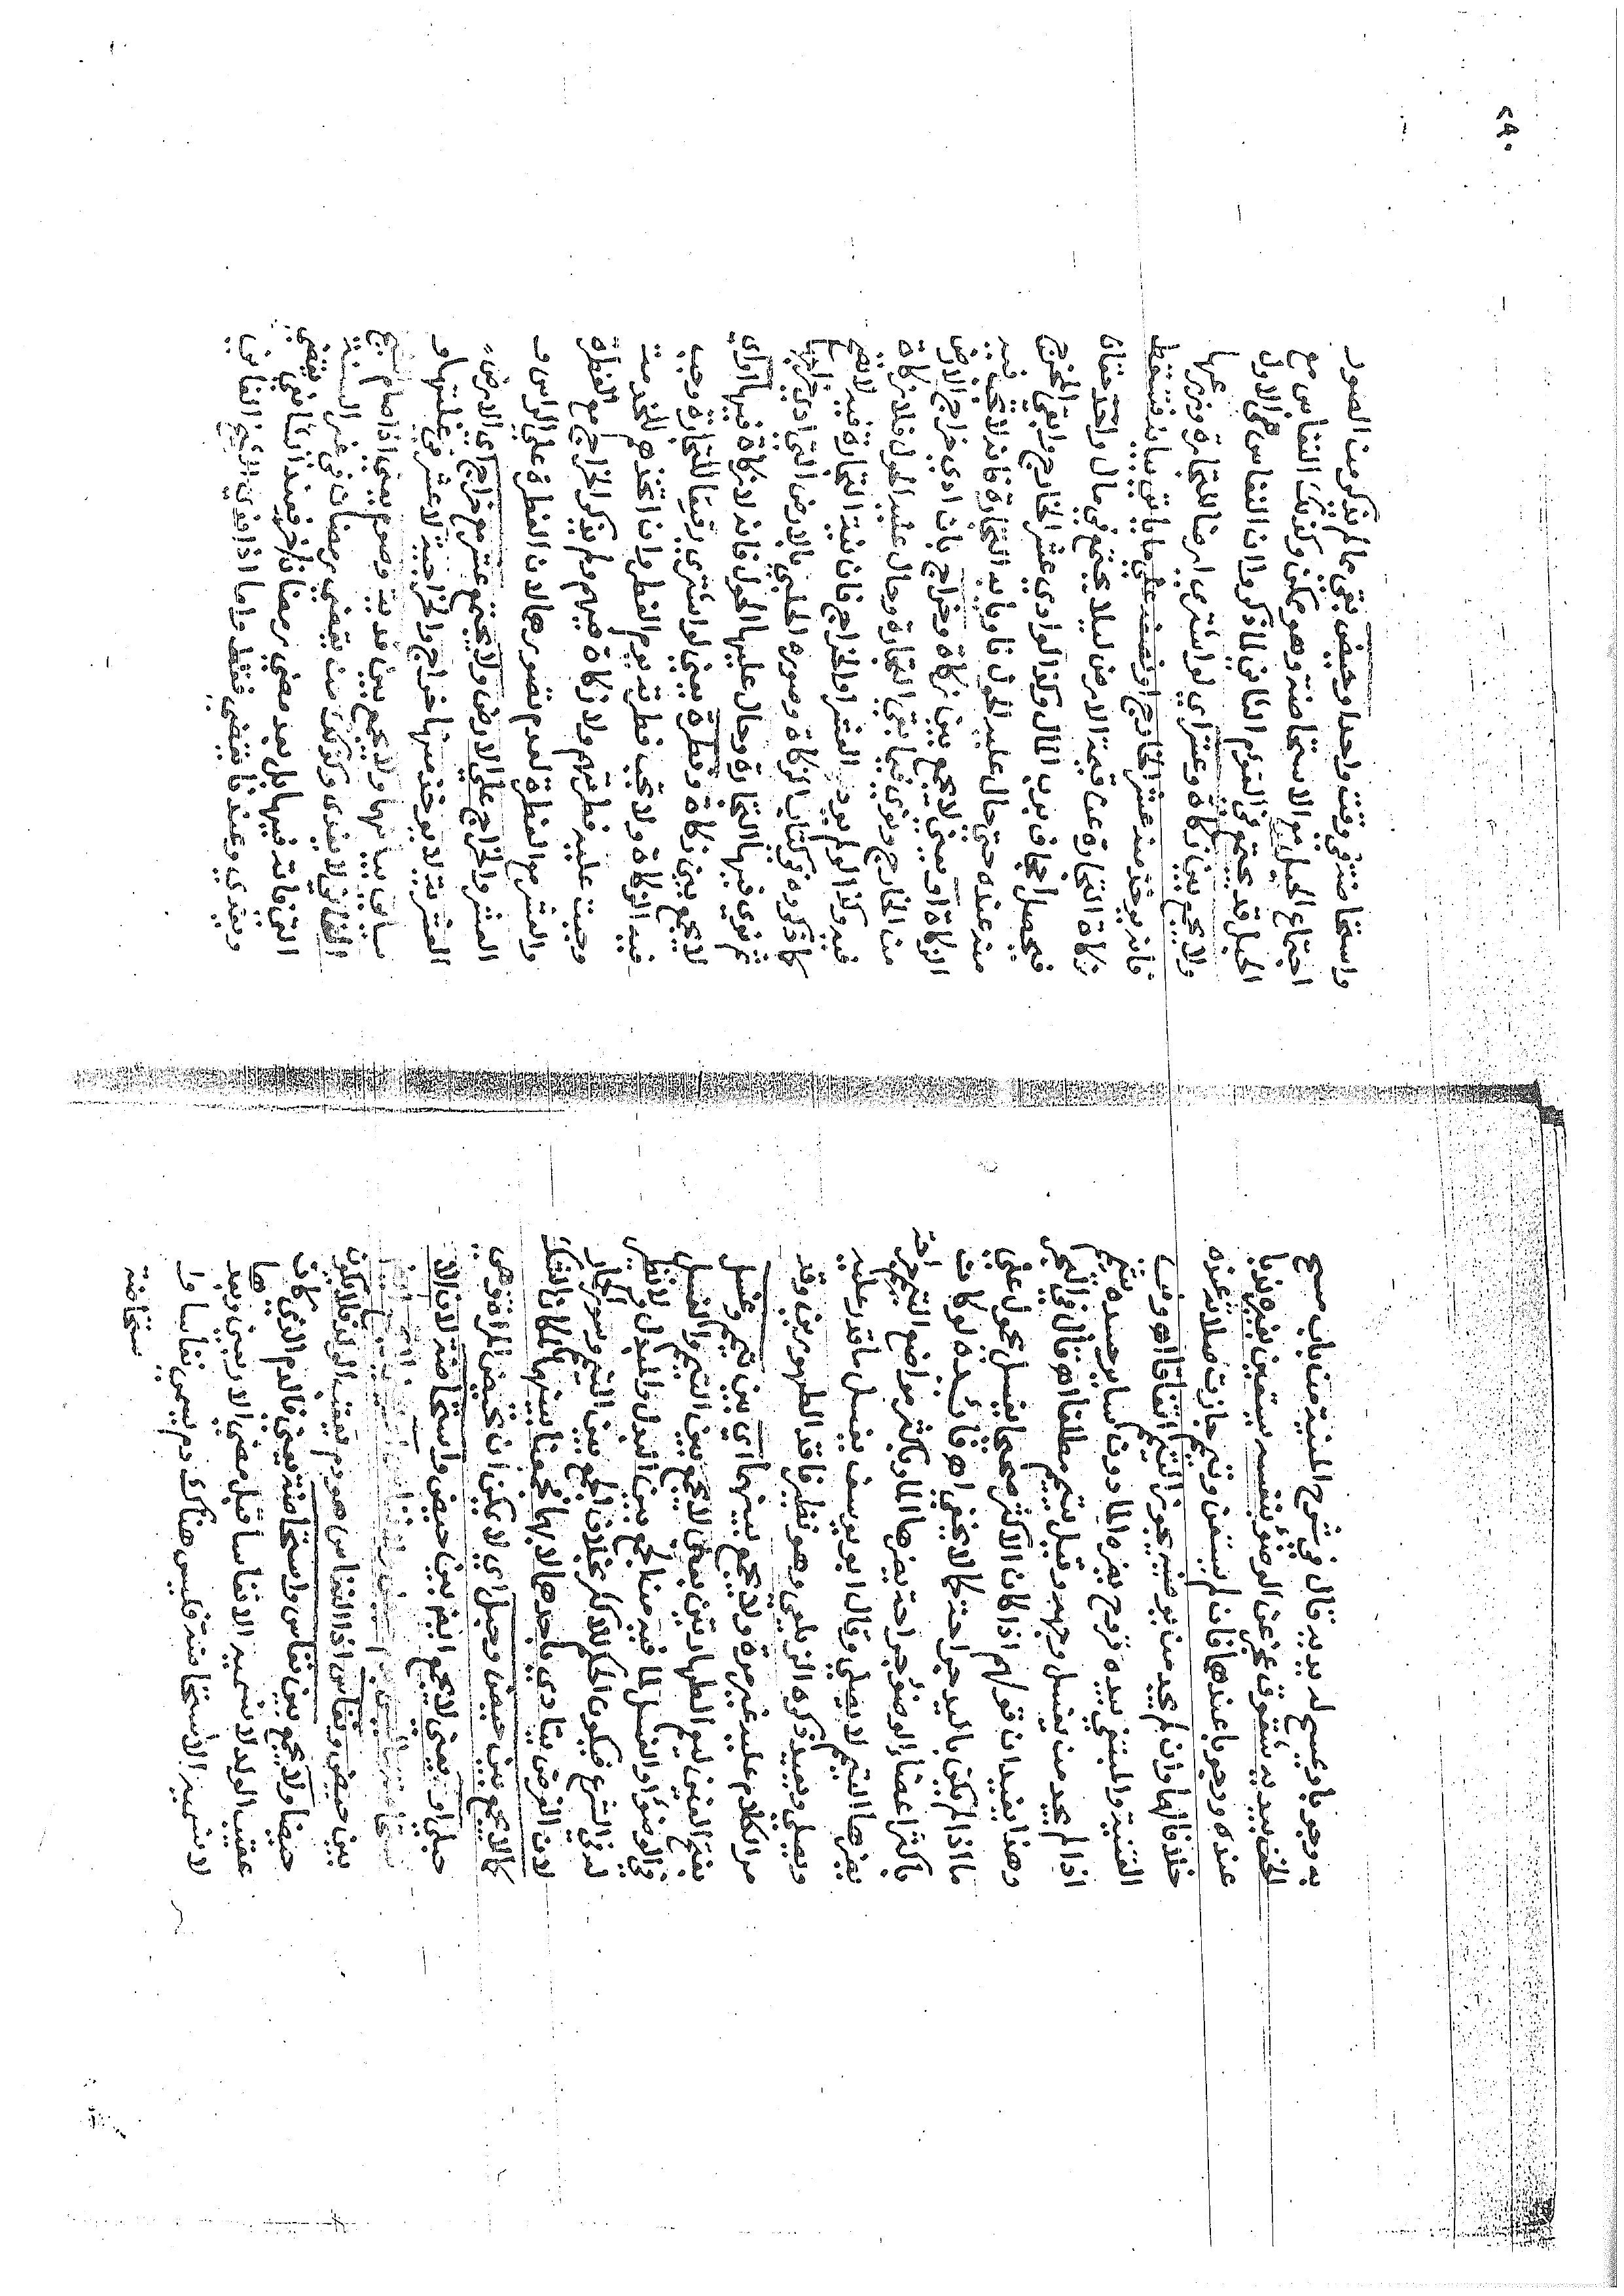 به وجوبا ويمسح لحديث قال في شرح المنية من باب مسح
الخف بيديه شقوق عجز عن الوضوء بنفسه يستعين بغيره ندبا
عنده ووجوبا عندها فان لم يستعن وتيمم جازت صلاته عنده
خلافا لهما وان لم يجد من يوضئه يجوز التيمم اتفاقا اهـ وفي
القنية والمبتغى بيده قروح يضره الماء دون سائر جسده يتيمم
اذا لم يجد من يغسل وجهه وقيل يتيمم مطلقا اهـ قال في البحر
وهذا يفيد ان قولهم اذا كان الاكثر صحيحا يغسل محمول على
ما اذا لم يكن باليد جراحة كما لا يخفى اهـ فائدة لو كان
باكثر اعضاء الوضوء جراحة يضرها الماء وباكثر مواضع التيمم جراحة
يضرها التيمم لا يصلي وقال ابو يوسف يغسل ما قدر عليه
ويصلي ويعيد ذكره الزيلعي وهو نظير فاقد الطهورين وقد
مر الكلام عليه غير مرة ولا يجمع بينهما اي بين تيمم وغسل
بفتح الغين ليعم الطهارتين يعني لا يجمع بين التيمم والغسل
في الوضوء او الغسل لما فيه من الجمع بين البدل والمبدل ولا نظير
له في الشرع فيكون الحكم للاكثر بخلاف الجمع بين التيمم وسور الحمار
لان الفرض يتادى باحدهما لا بهما فجمعنا بينهما لمكان الشك
كما لا يجمع بين حيض وحبل اي لا يمكن ان تحيض المراة وهي
حبلى او يعني لا يجمع ايضا بين حيض واستحاضة لان الا
بين حيض ونفاس اذ النفاس هو دم يعقب الولد فلا يكون
حيضا ولا يجمع بين نفاس واستحاضة يعني فالدم الذي كان
عقيب الولد لا نسميه الا نفاسا قبل مضي الاربعين وبعدها
لا نسميه الا استحاضة فليس هناك دم يسمى نفاسا وا
ستحاضة
٢٩٠
واستحاضة في وقت واحد او حيض بقي ما لم يذكر من الصور
اجتماع الحبل مع الاستحاضة وهو ممكن وكذلك النفاس مع
الحبل قد يجتمع في التوم الثاني لما ذكروا ان النفاس من الاول
ولا يجمع بين زكاة وعشر اي لو اشترى ارضا للتجارة وزرعها
فانه يوخذ منه عشر الخارج او نصفه على ما ياتي بيانه فتسقط
زكاة التجارة عن قيمة الارض ليلا يجتمع في مال واحد حقان
فيحصل اجحاف برب المال وكذا لو ادى عشر الخارج وابقى المخرج
منه عنده حتى حال عليه الحول ناويا به التجارة فانه لا تجب فيه
الزكاة او يعني لا يجمع بين زكاة وخراج بان ادى خراج الارض
من الخارج ونوى فيما بقي التجارة وحال عليه الحول فلا زكاة
فيه وكذا لو لم يود العشر او الخراج فان نية التجارة فيه لا تصح
كما ذكروه في كتاب الزكاة وصوره الحلبي بالارض التي ادى خراجها
ثم نوى فيها التجارة وحال عليها الحول فانه لا زكاة فيها او اي
لا يجمع بين زكاة وفطرة يعني لو اشترى رقيقا للتجارة وجب
فيه الزكاة ولا تجب فطرته يوم الفطر وان اتخذهم للخدمة
وجبت عليه فطرتهم ولا زكاة فيهم ولم يذكر الخراج مع الفطرة
والعشر مع الفطرة لعدم تصورهما لان الفطرة على الراس و
العشر والخراج على الارض ولا يجتمع عشر مع خراج اي الارض
العشرية لا يوخذ منها خراج والخراجية لا عشر في غلتها و
سياتي بيانها ولا يجمع بين فدية وصوم يعني اذا صام الشيخ
الفاني لا يفدي وكذا من يقضي رمضان في غير السنة
التي فاته فيها بل بعد مضي رمضان اخر فعندنا يقضي
ويفدي وعندنا يقضي فقط واما اذا فدى الشيخ الفاني